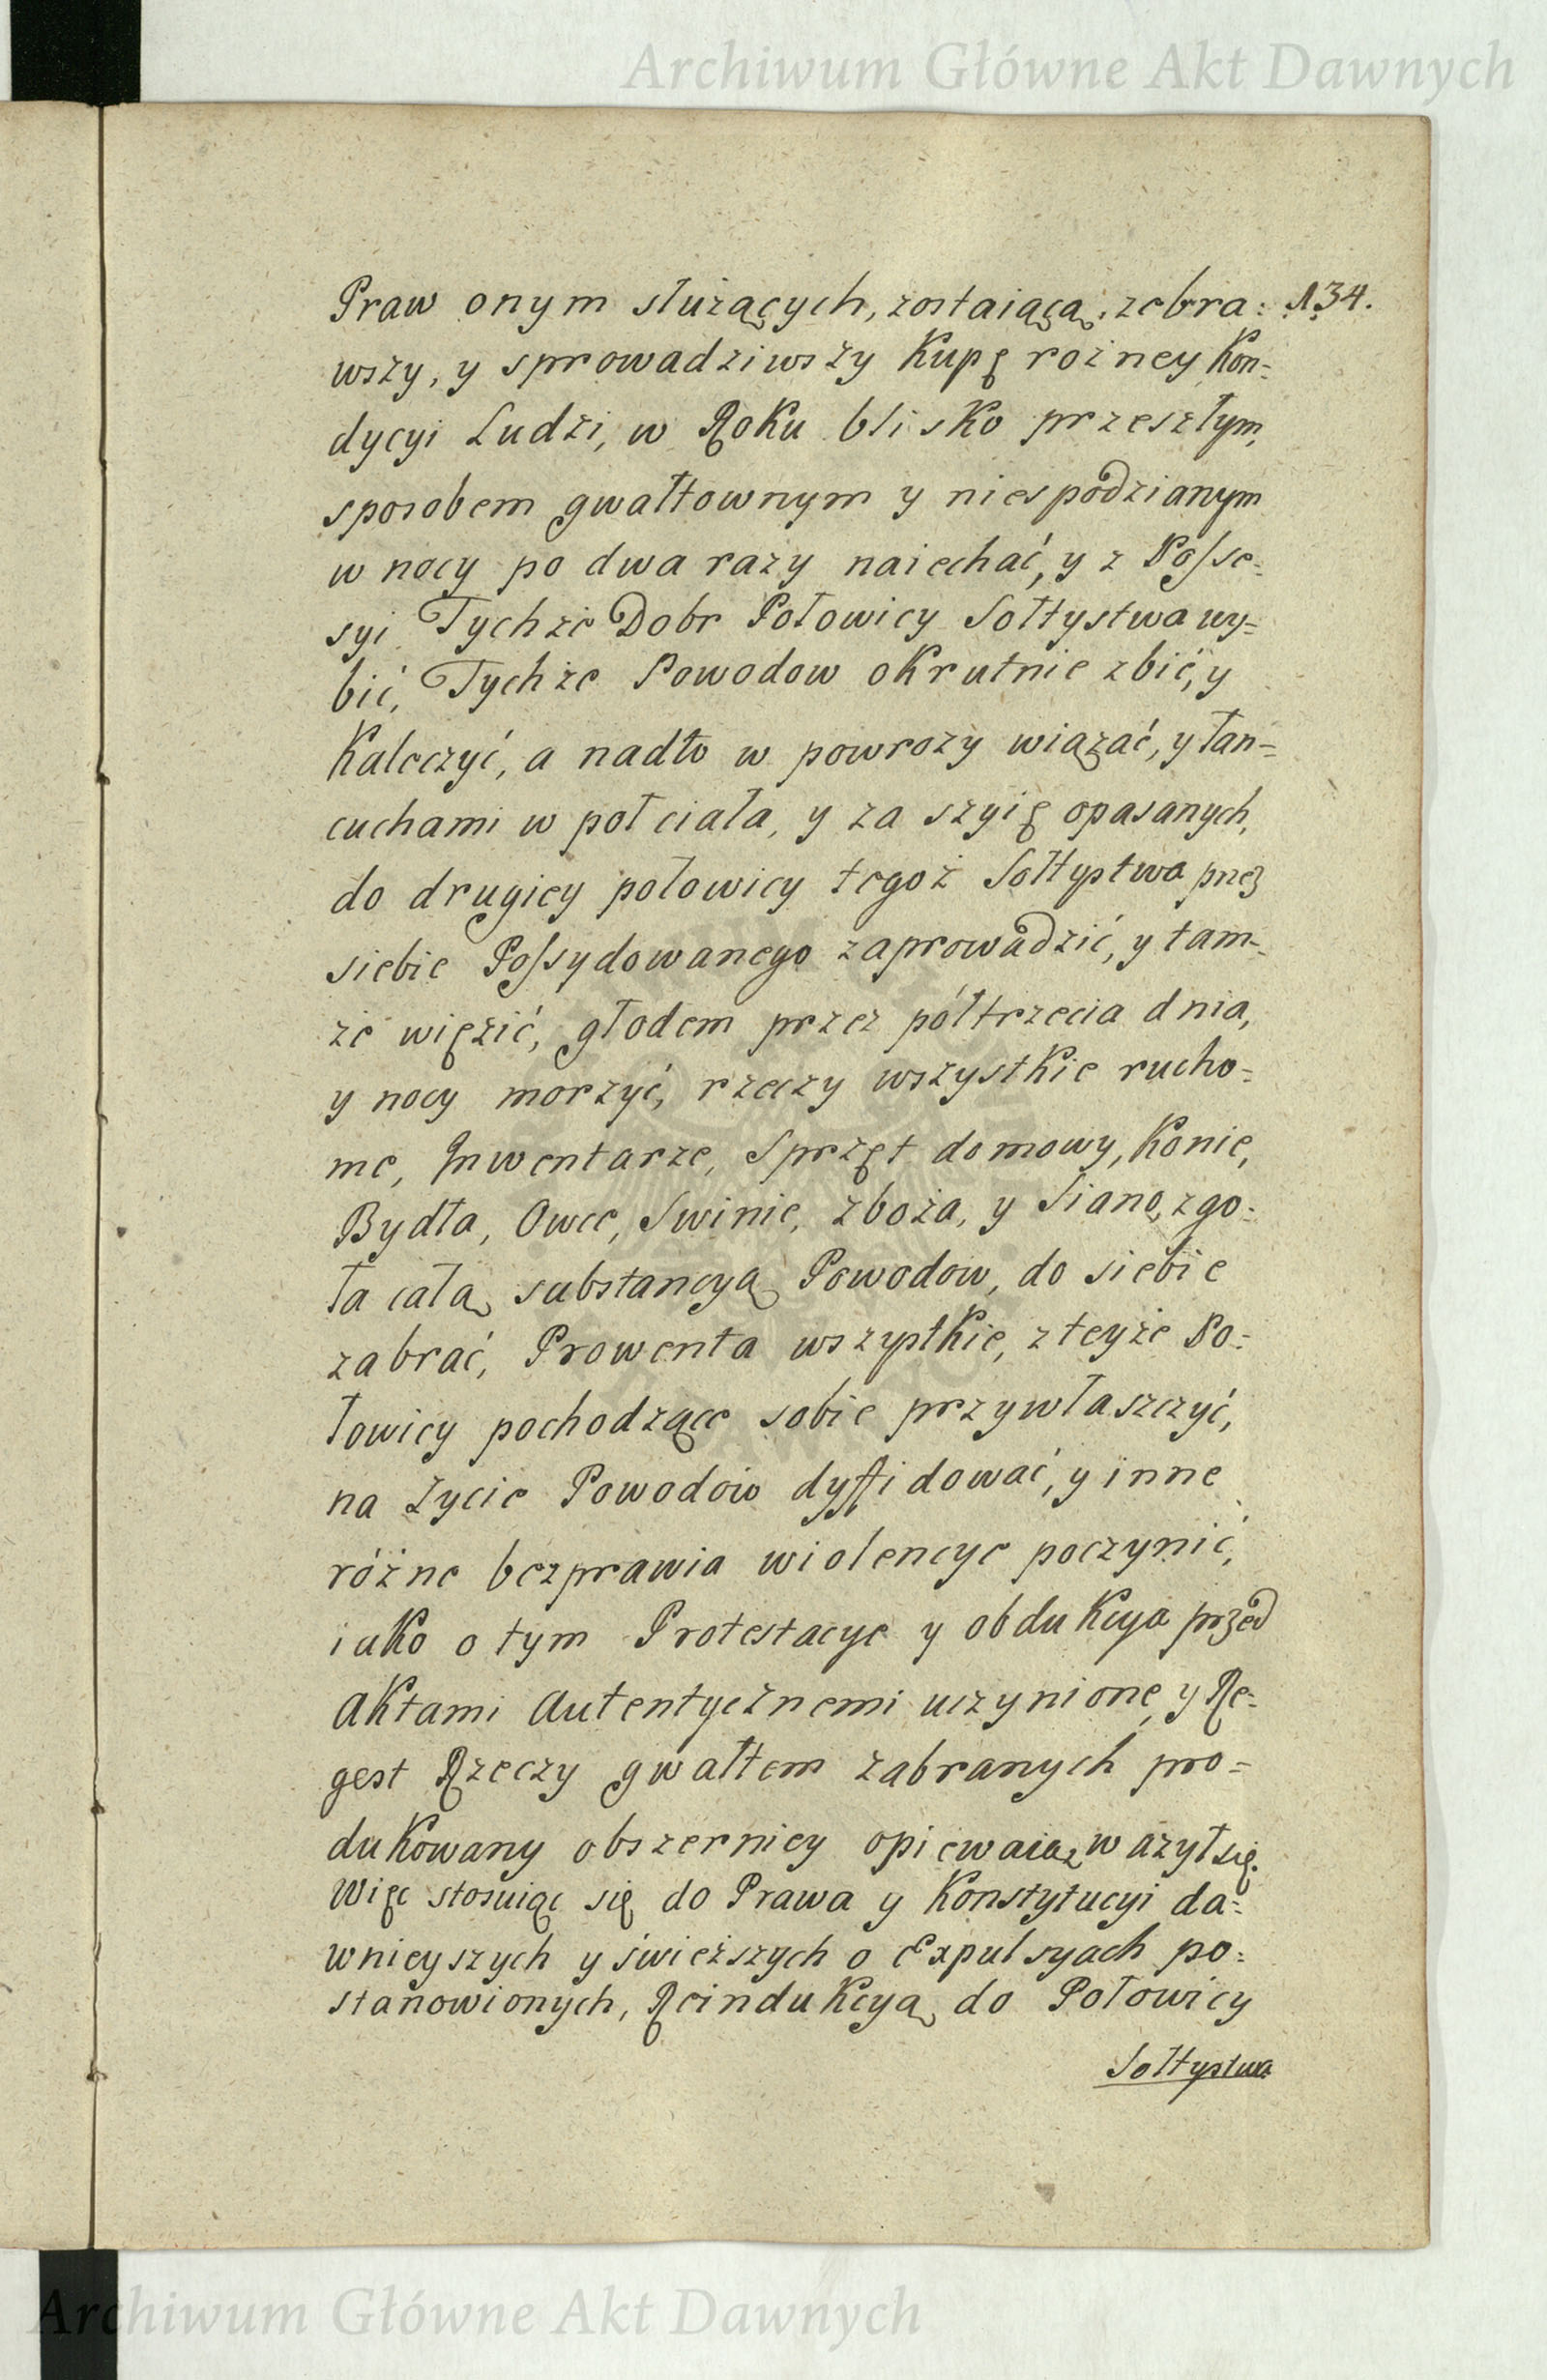 Archiwum Główne Akt Dawnych
Praw onym służących, zostaiącą, zebra: 134.
wszy, y sprowadziwszy Kupę rożney Kon=
dycyi Ludzi, w Roku blisko przeszłym,
sposobem gwałtownym y niespodzianym
w nocy po dwa razy naiechać, y z Posse=
syi Tychże Dobr Połowicy Sołtystwa wy=
bić, Tychże Powodow okrutnie zbić, y
Kaleczyć, a nadto w powrozy wiązać, y łan=
cuchami w poł ciała, y za szyię opasanych,
do drugiey połowicy tegoż Sołtystwa przez
siebie Possydowanego zaprowadzić, y tam=
że więzić, głodem przez półtrzecia dnia,
y nocy morzyć, rzeczy wszystkie rucho=
me, Inwentarze, Sprzęt domowy, Konie,
Bydła, Owce, Swinie, zboża, y Siano, zgo=
ła całą substancyą Powodow, do siebie
zabrać, Prowenta wszystkie, z teyże Po=
łowicy pochodzące sobie przywłaszczyć,
na życie Powodów dyffidować, y inne
różne bezprawia wiolencye poczynić,
iako o tym Protestacye y obdukcya przed
Aktami Autentycznemi uczynione, y Re=
gest Rzeczy gwałtem zabranych pro=
dukowany obszerniey opiewaią, ważył się.
Więc stosuiąc się do Prawa y Konstytucyi da=
wnieyszych y świeższych o Expulsyach po=
stanowionych, Reindukcyą do Połowicy
Sołtystwa
Archiwum Główne Akt Dawnych